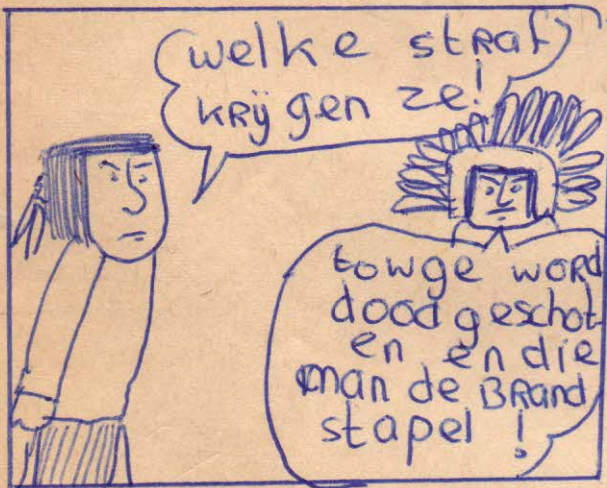 welke straf
krijgen ze!
towge word
dood geschot-
en en die
man de Brand
stapel !